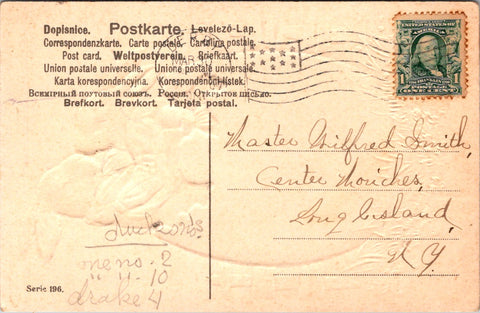 Dopisnice. Postkarte. Levelező-Lap.
Correspondenzkarte. Carte postale. Cartolina postale.
Post card. Weltpostverein. Briefkaart.
Union postale universelle. Unione postale universale.
Karta korespondencyjna. Korespondenční lístek.
Всемірный почтовый союзъ. Россія. Открытое письмо.
Brefkort. Brevkort. Tarjeta postal.
MAR
AMERICA
1
ONE CENT
Master Wilfred Smith,
Center Moriches,
Long Island,
N Y.
mens - 2
" " - 10
drake 4
Serie 196.